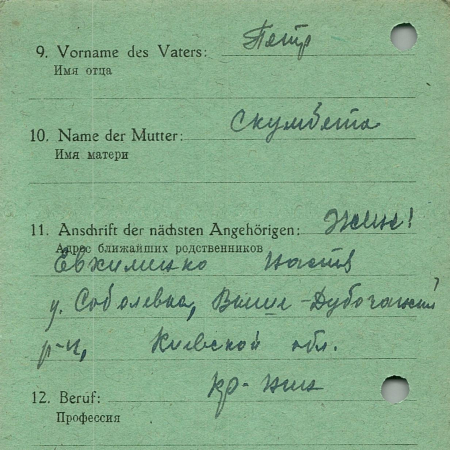 9. Vorname des Vaters: Петр
Имя отца
10. Name der Mutter: Скумбета
Имя матери
11. Anschrift der nächsten Angehörigen:
Адрес ближайших родственников
Настя
Соболевка, Выше-Дубечанский
р-н, Киевской обл.
12. Beruf: кр-нин
Профессия